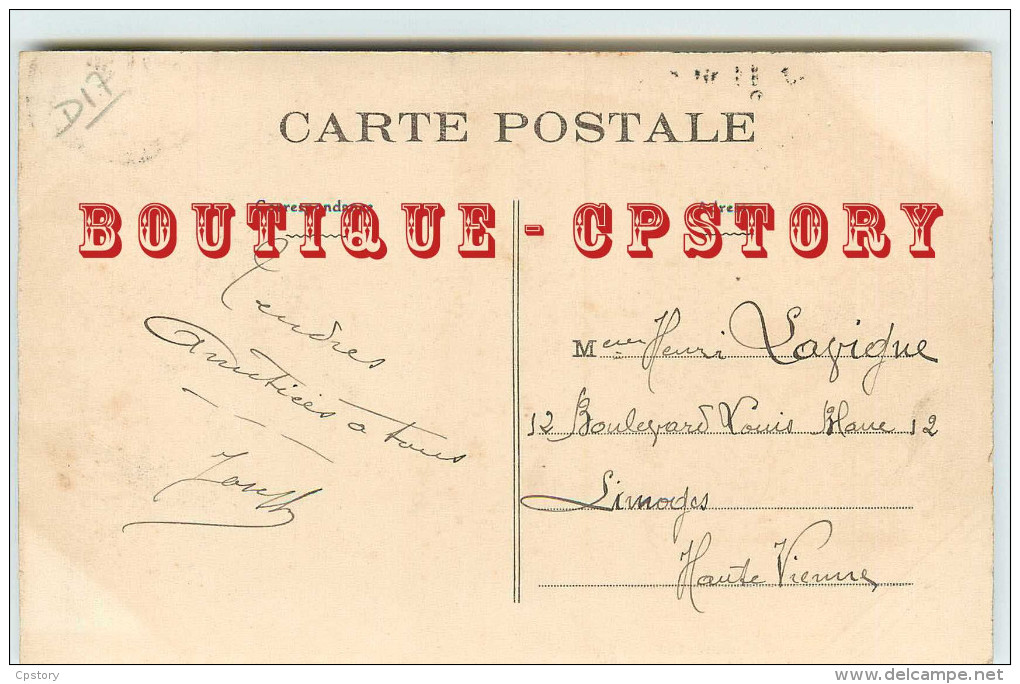 D17
CARTE POSTALE
Correspondance
Adresse
BOUTIQUE - CPSTORY
Tendres
amitiés à tous
Meur Henri Lavigne
12 Boulevard Louis Blanc 12
Limoges
Haute Vienne
Cpstory
www.delcampe.net